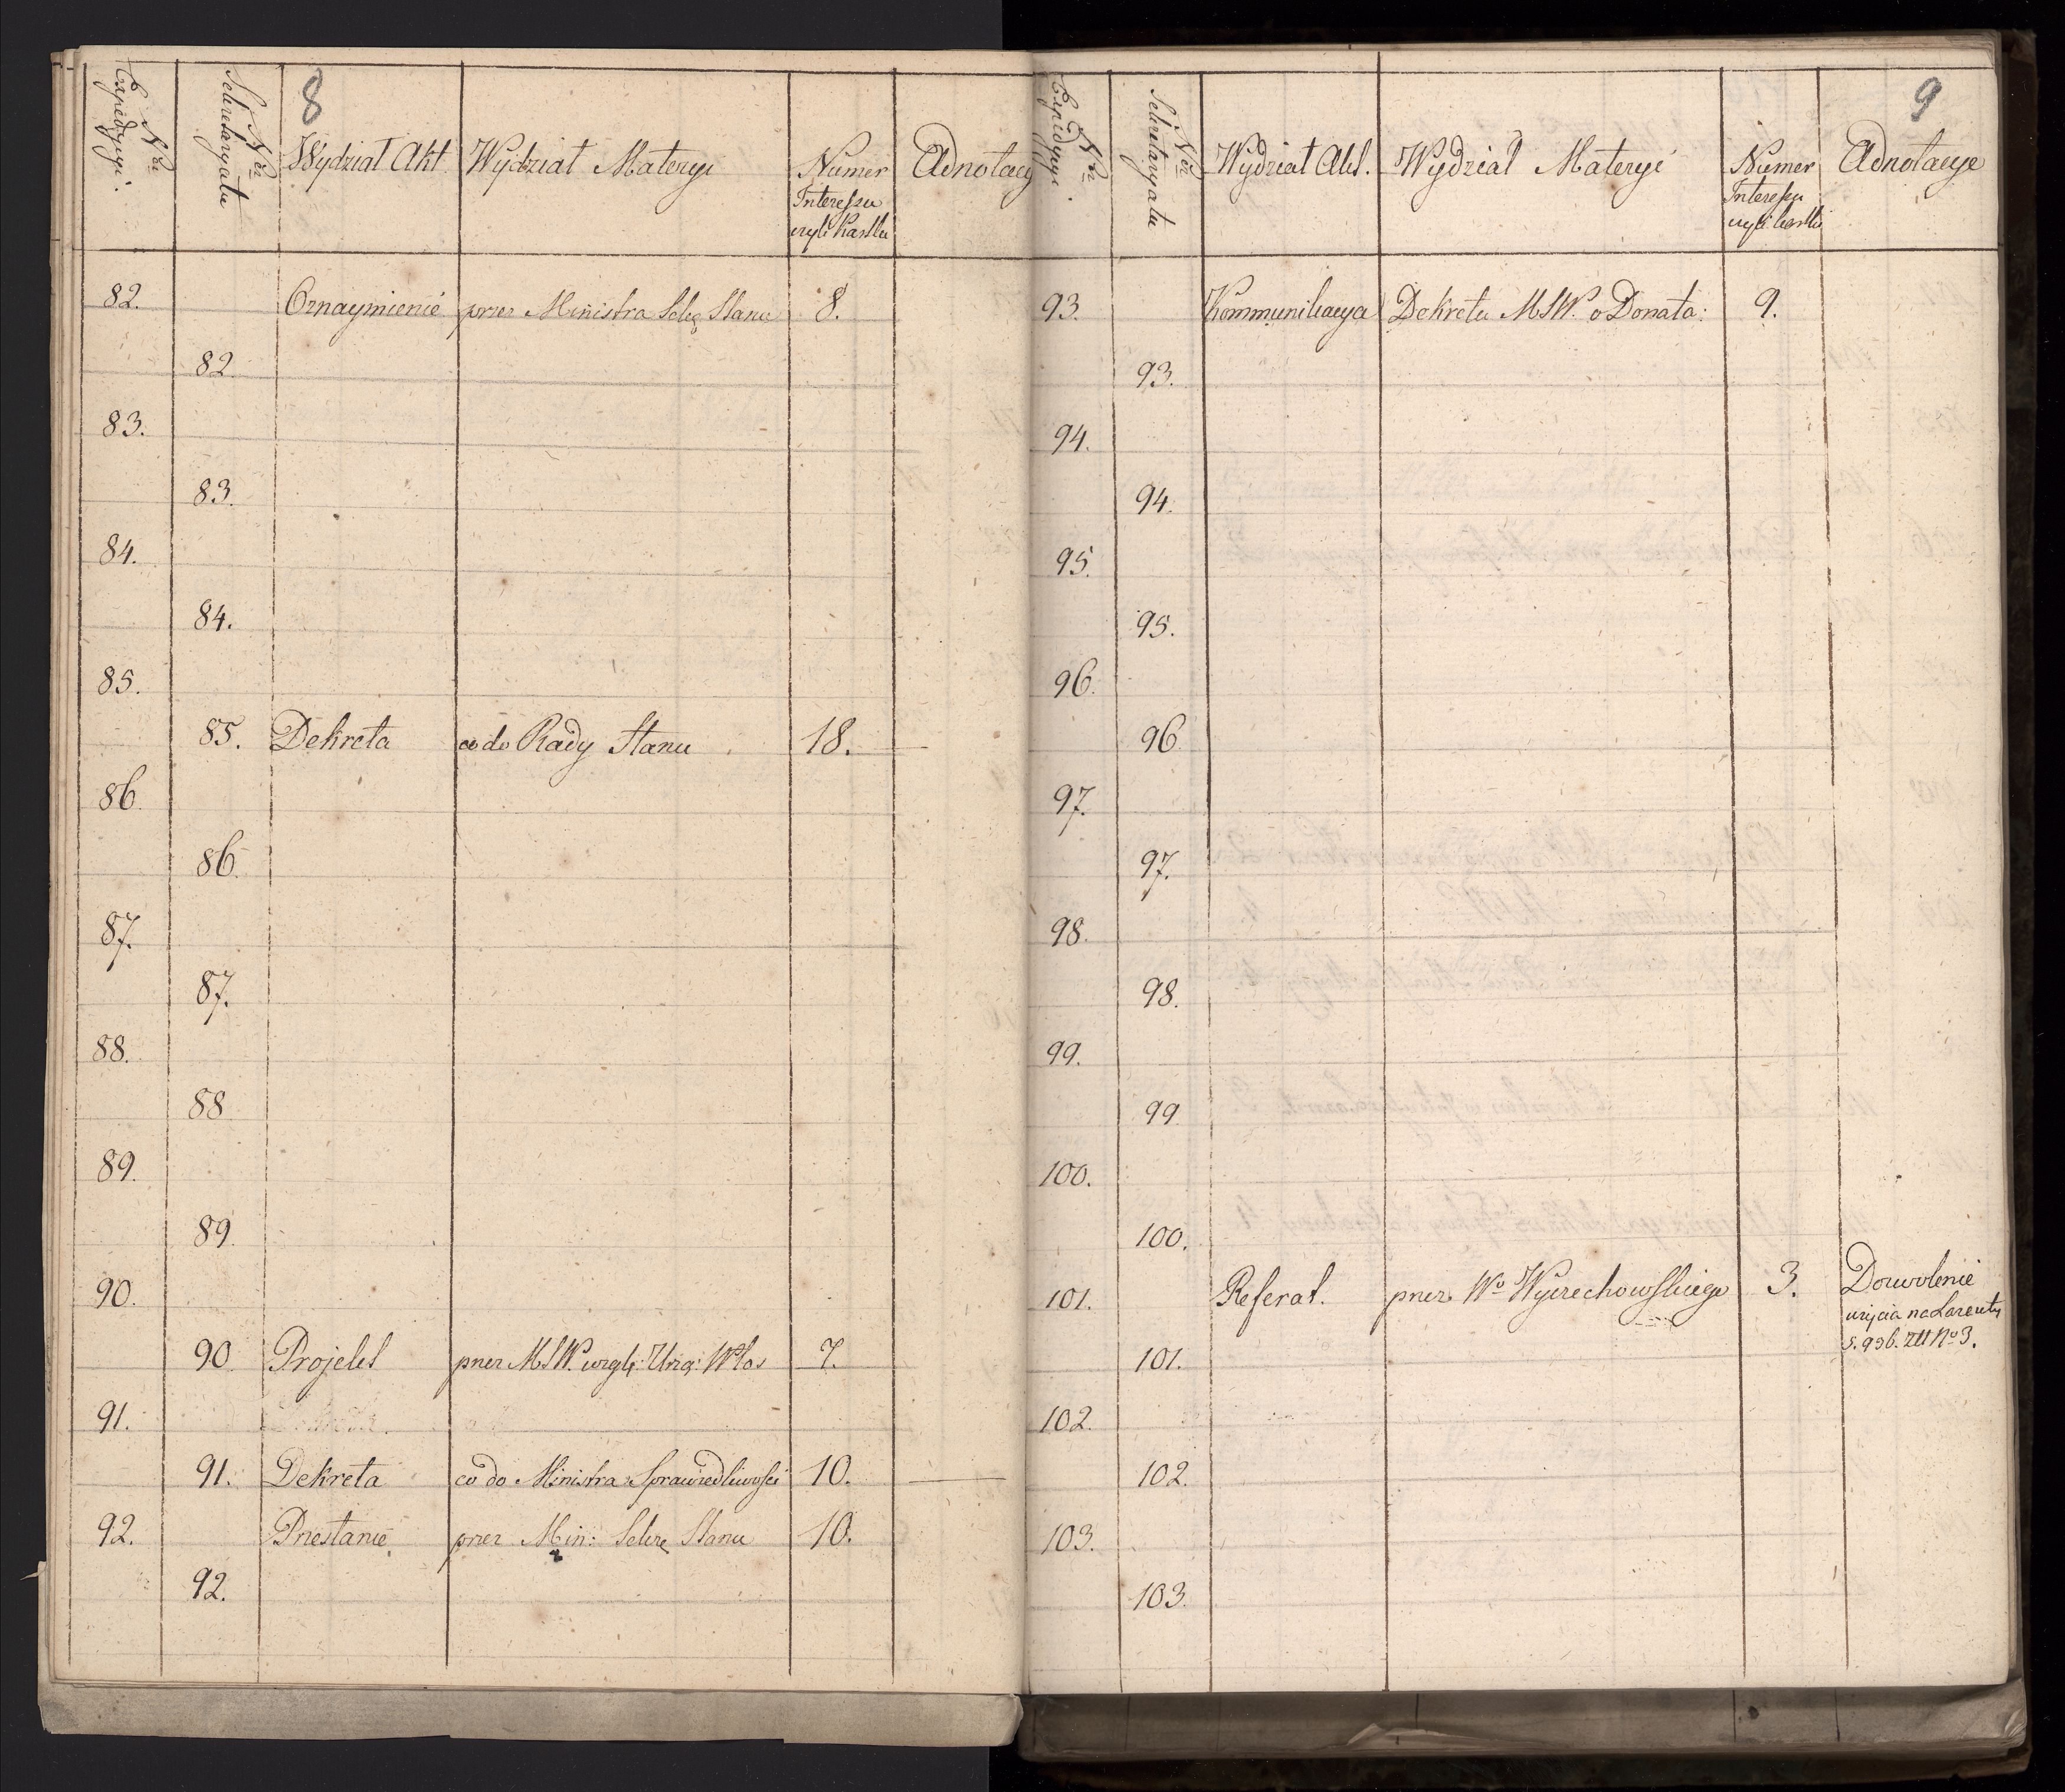 8
Nr Expedycyi.
Nr Sekretaryatu
Wydział Akt
Wydział Materyi
Numer
Interessu
czyli Kartki
Adnotacy
82. Oznaymienie przez Ministra Sekr Stanu 8.
82.
83.
83.
84.
84.
85.
85. Dekreta co do Rady Stanu 18. —
86.
86.
87.
87.
88.
88
89.
89.
90.
90 Projekt przez MSW. wzgl: Urzą: Włos 7.
91.
91. Dekreta co do Ministra Sprawiedliwości 10. —
92. Przesłanie przez Min: Sekre Stanu 10.
92.
9
Nr Expedycyi.
Nr Sekretaryatu
Wydział Akt.
Wydział Materyi
Numer
Interessu
czyli kartki
Adnotacye
93. Kommunikacya Dekretu MSW. o Donata: 9.
93.
94.
94.
95.
95.
96.
96
97.
97.
98.
98.
99.
99
100.
100.
101. Referat. przez Wo Wyczechowskiego 3. Dozwolenie
użycia na Lazarety
5.936. Zł No 3.
101.
102.
102.
103.
103.